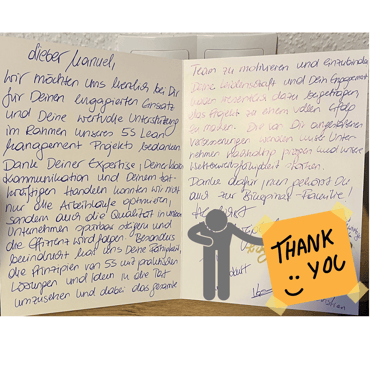 Lieber Manuel,
Wir möchten uns herzlich bei Dir
für Deinen engagierten Einsatz
und Deine wertvolle Unterstützung
im Rahmen unseres 5S Lean
Management Projekts bedanken.
Dank Deiner Expertise, Deiner
Kommunikation und Deinem tat-
kräftigen Handeln konnten wir nicht
nur die Arbeitsläufe optimieren,
sondern auch die Qualität in unserem
Unternehmen spürbar steigern und
die Effizienz Besonders
beeindruckt hat uns Deine Fähigkeit,
die Prinzipien von 5S mit praktischen
Lösungen und Ideen in die Tat
umzusetzen und dabei das gesamte
Team zu motivieren und einzubinden.
Deine Leidenschaft und Dein Engagement
haben wesentlich dazu beigetragen,
das Projekt zu einem vollen Erfolg
zu machen. Die von Dir
Verbesserungen werden unser Unter-
nehmen nachhaltig prägen und unsere
Wettbewerbsfähigkeit
Danke dafür, gehörst Du
auch zur Familie!
THANK
YOU